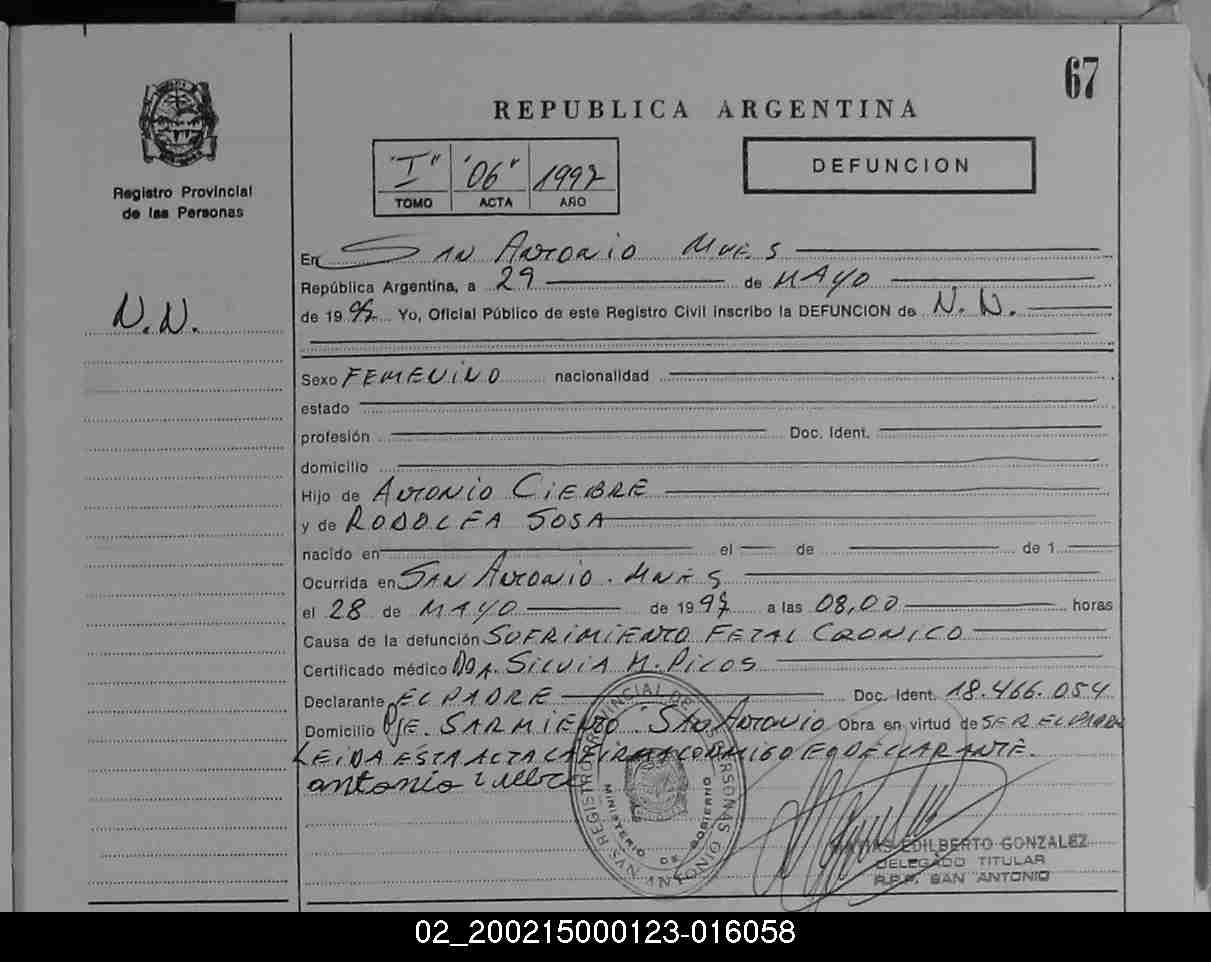 67
REPUBLICA ARGENTINA
"I" "06" 1997
TOMO ACTA AÑO
DEFUNCION
Registro Provincial
de las Personas
N.N.
En SAN ANTONIO MNES
República Argentina, a 29 de MAYO
de 1997 Yo, Oficial Público de este Registro Civil inscribo la DEFUNCION de N. N.
Sexo FEMENINO nacionalidad
estado
profesión Doc. Ident.
domicilio
Hijo de ANTONIO CIEBRE
y de RODOLFA SOSA
nacido en el de de 1
Ocurrida en SAN ANTONIO. MNES
el 28 de MAYO de 1997 a las 08,00 horas
Causa de la defunción SUFRIMIENTO FETAL CRONICO
Certificado médico DRA. SILVIA M. PICOS
Declarante EL PADRE Doc. Ident. 18.466.054
Domicilio PJE. SARMIENTO. SAN ANTONIO Obra en virtud de SER EL PADRE
LEIDA ESTA ACTA LA FIRMA CONMIGO EL DECLARANTE.
antonio
REGISTRO PROVINCIAL DE LAS PERSONAS
MINISTERIO DE GOBIERNO
SAN ANTONIO MNS.
EDILBERTO GONZALEZ
DELEGADO TITULAR
R.P.P. SAN ANTONIO
02_200215000123-016058